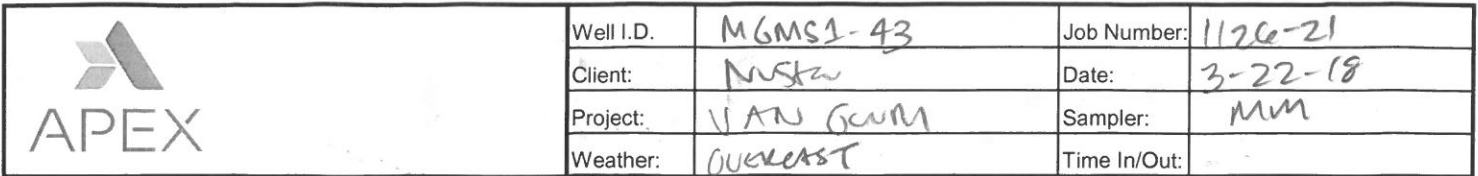 Well I.D. MGMS1-43 Job Number: 1126-21
Client: NuStar Date: 3-22-18
APEX
Project: VAN GWM Sampler: MM
Weather: OVERCAST Time In/Out: